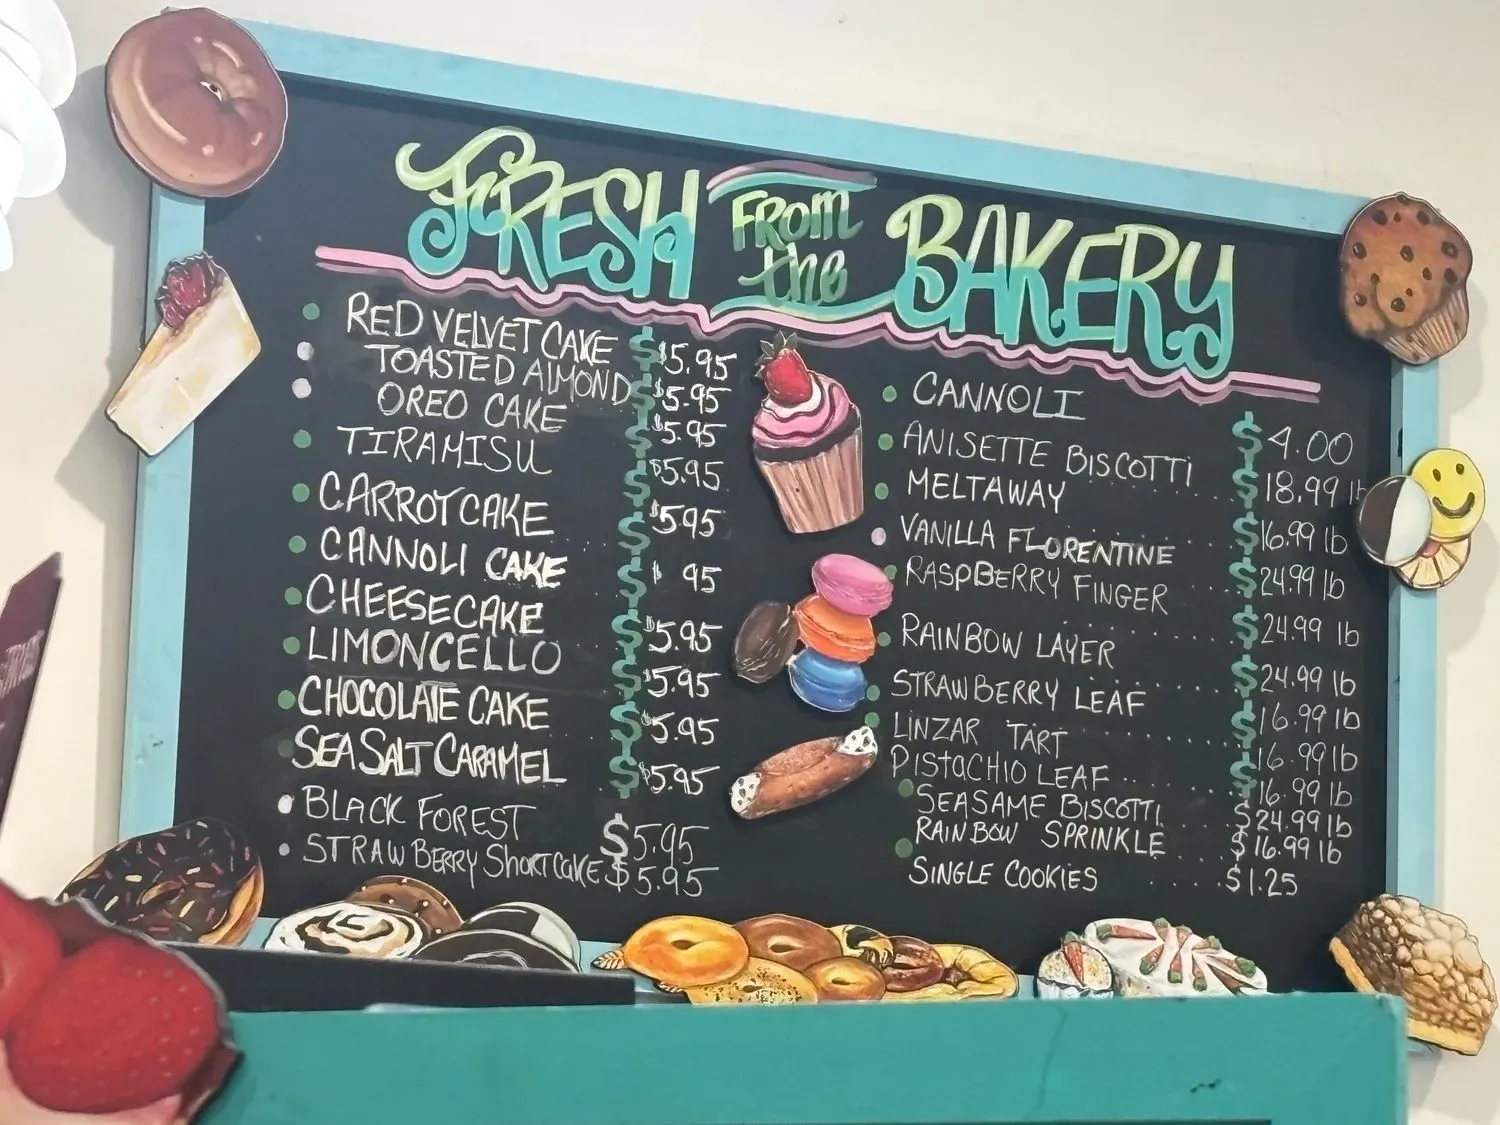 FRESH FROM the BAKERY
RED VELVET CAKE $ $5.95
TOASTED ALMOND $ $5.95
OREO CAKE $ $5.95
TIRAMISU $ $5.95
CARROT CAKE $ $5.95
CANNOLI CAKE $ $ 95
CHEESECAKE $ $5.95
LIMONCELLO $ $5.95
CHOCOLATE CAKE $ $5.95
SEA SALT CARAMEL $ $5.95
BLACK FOREST $5.95
STRAWBERRY SHORTCAKE $5.95
CANNOLI $4.00
ANISETTE BISCOTTI $18.99 lb
MELTAWAY $16.99 lb
VANILLA FLORENTINE $24.99 lb
RASPBERRY FINGER $24.99 lb
RAINBOW LAYER $24.99 lb
STRAWBERRY LEAF $16.99 lb
LINZAR TART $16.99 lb
PISTACHIO LEAF $16.99 lb
SEASAME BISCOTTI $24.99 lb
RAINBOW SPRINKLE $16.99 lb
SINGLE COOKIES $1.25